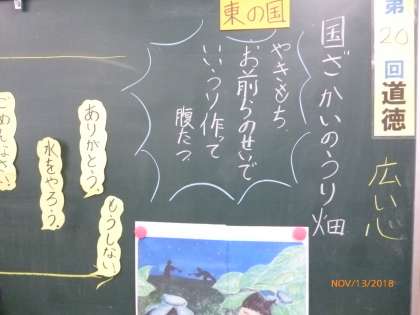 第20回道徳
広い心
国ざかいのうり畑
東の国
やきもち、
お前らのせいで
いいうり作って
腹たつ
ありがとう。
もうしない
水をやろう。
ごめんなさい
NOV/13/2018